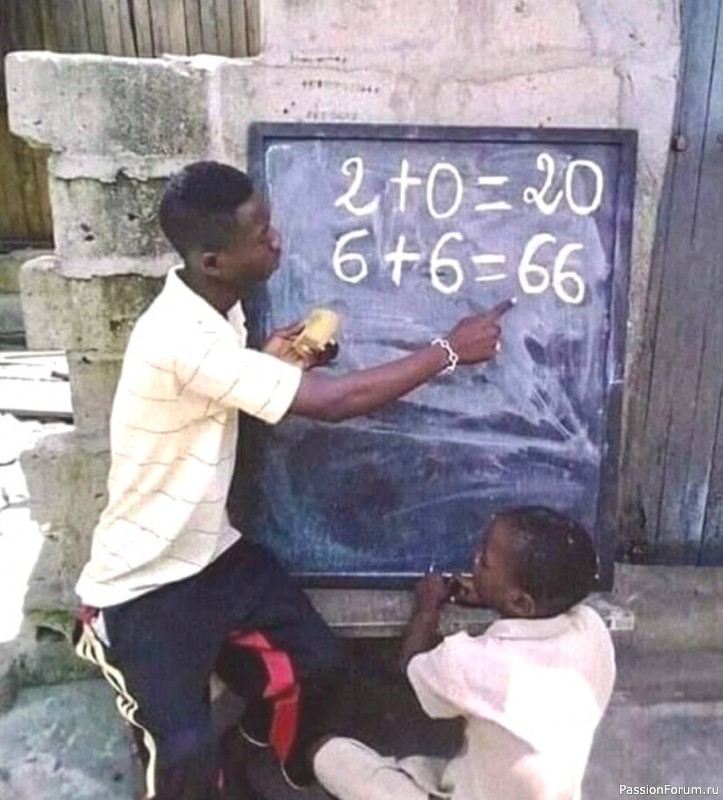 2+0=20
6+6=66
PassionForum.ru